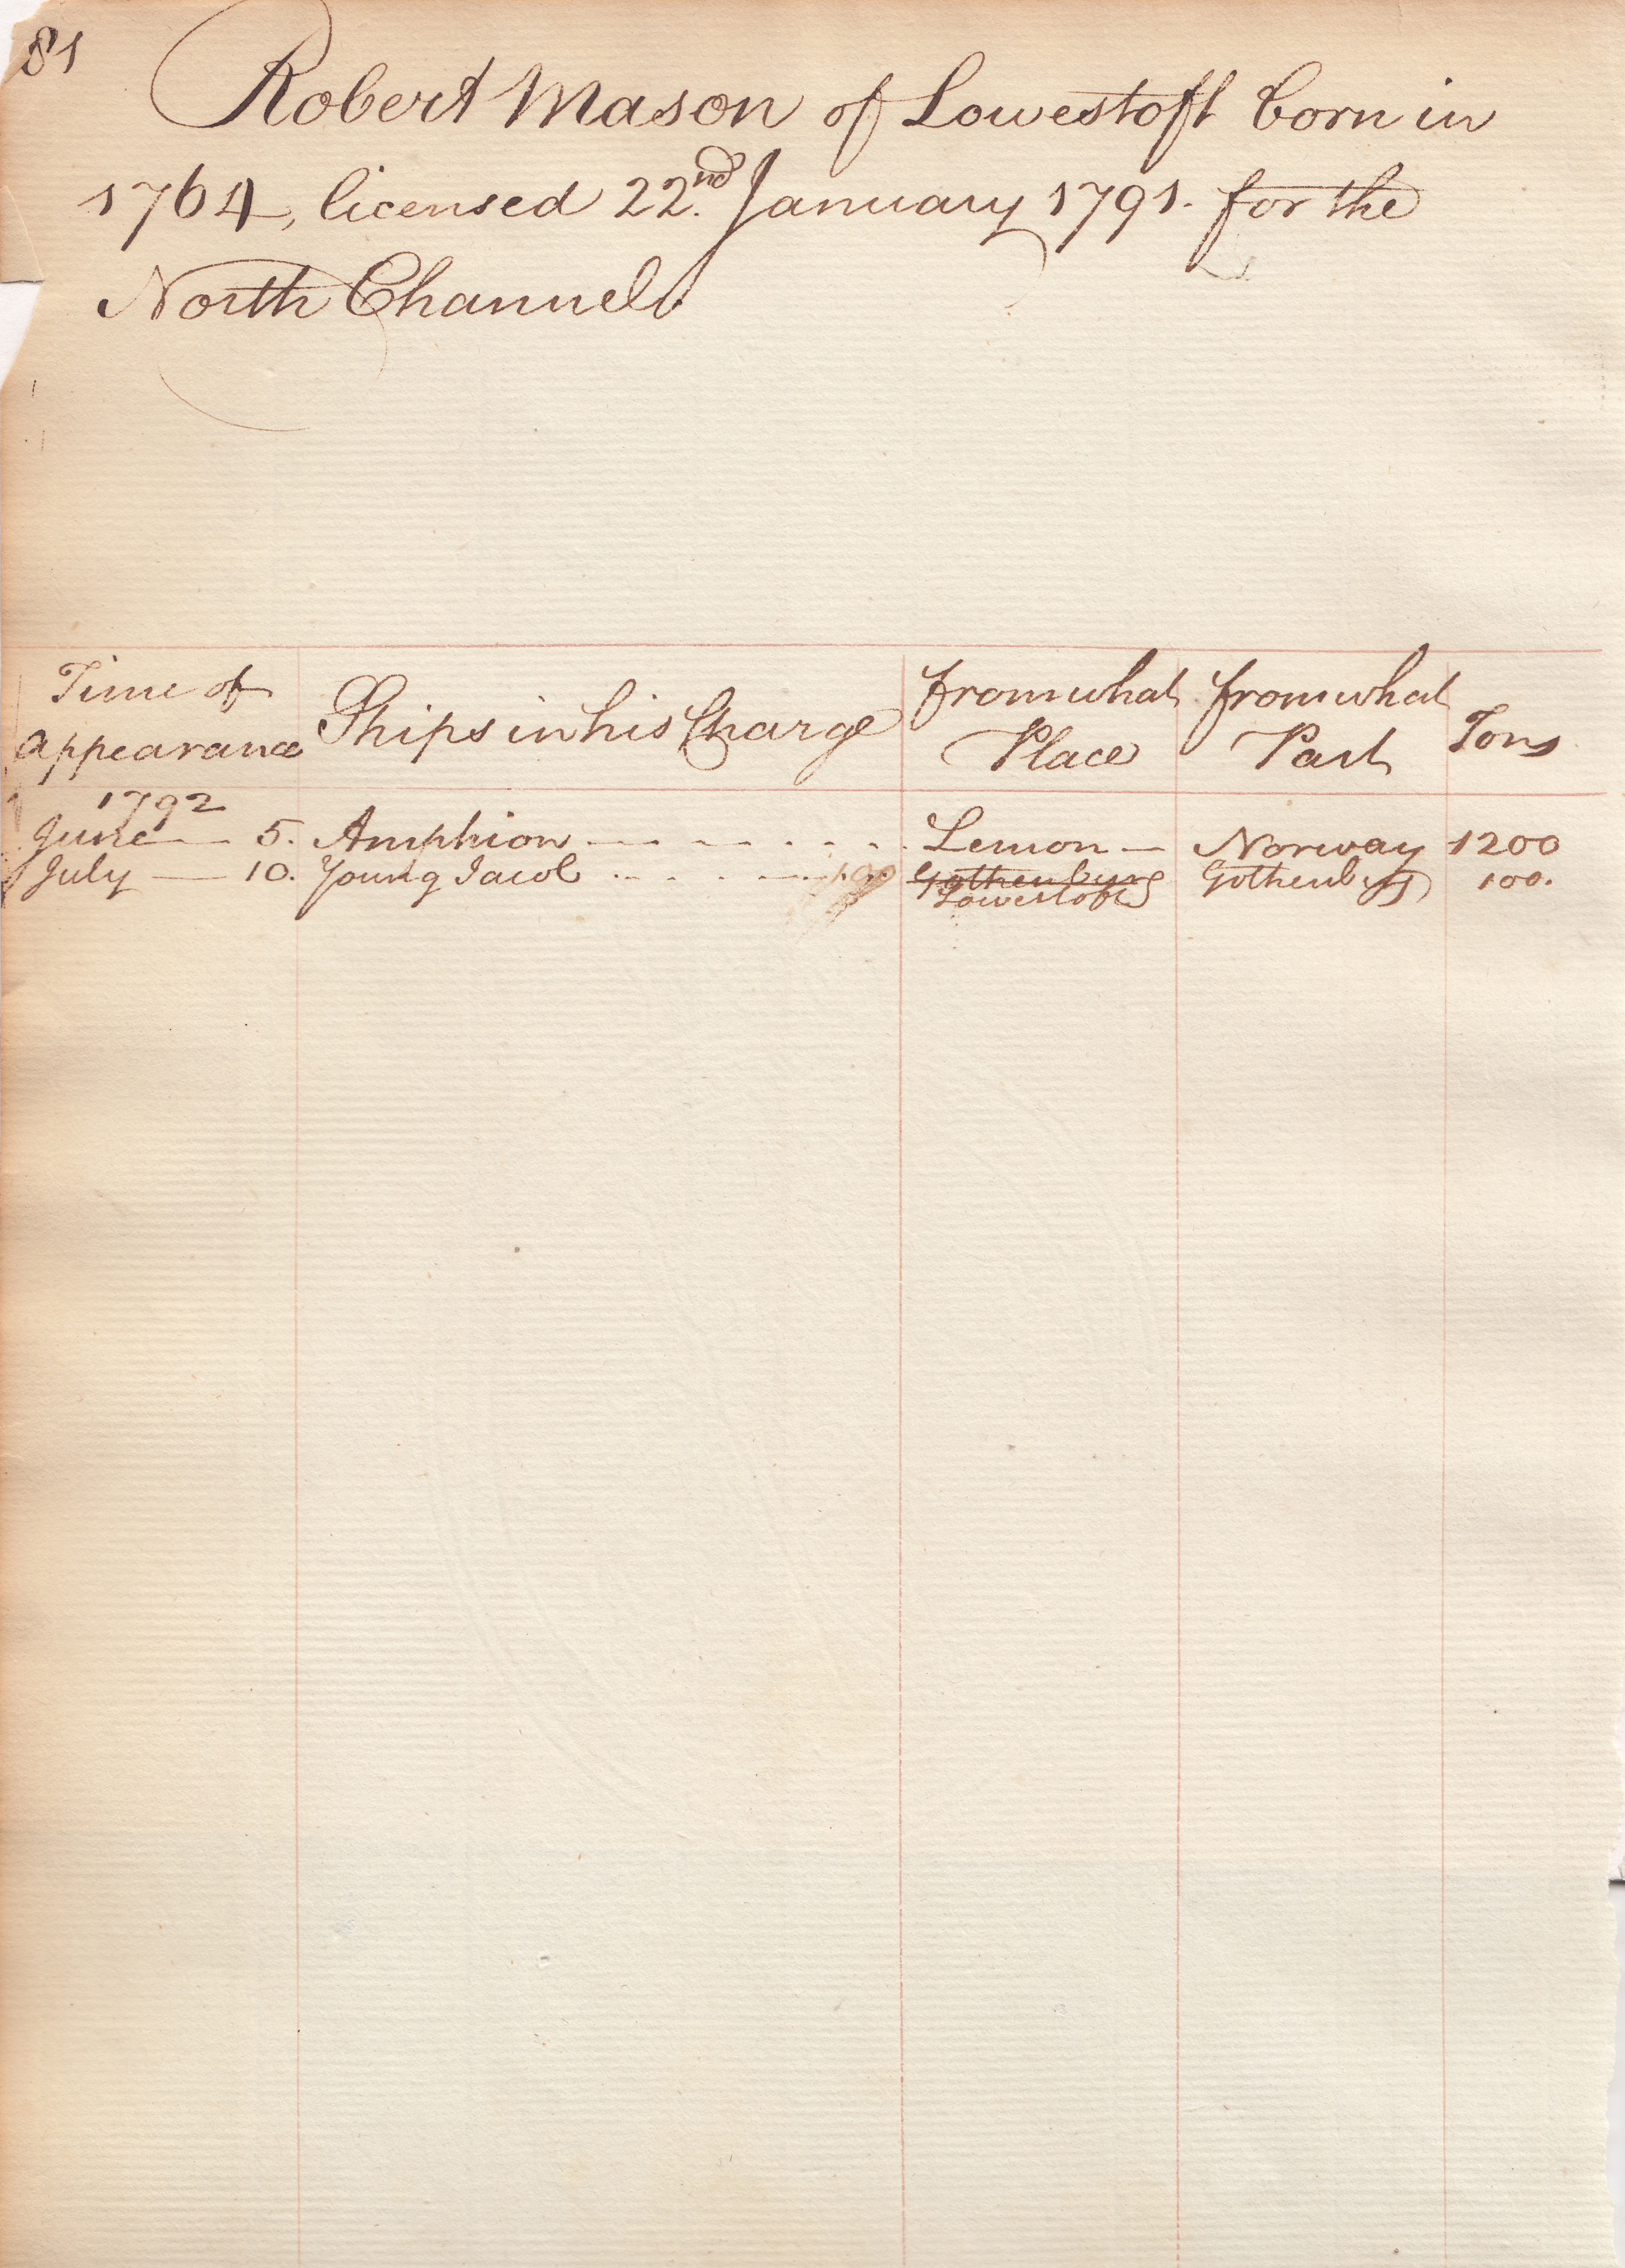 81
Robert Mason of Lowestoft born in
1764, licensed 22.nd January 1791. for the
North Channel.
Time of Appearance Ships in his Charge from what Place from what Part Tons
1792
June — 5. Amphion - - - - - - - Lemon — Norway 1200
July — 10. Young Jacob - - - - - - 100 Gothenburg Gothenburg 100.
Lowestoft